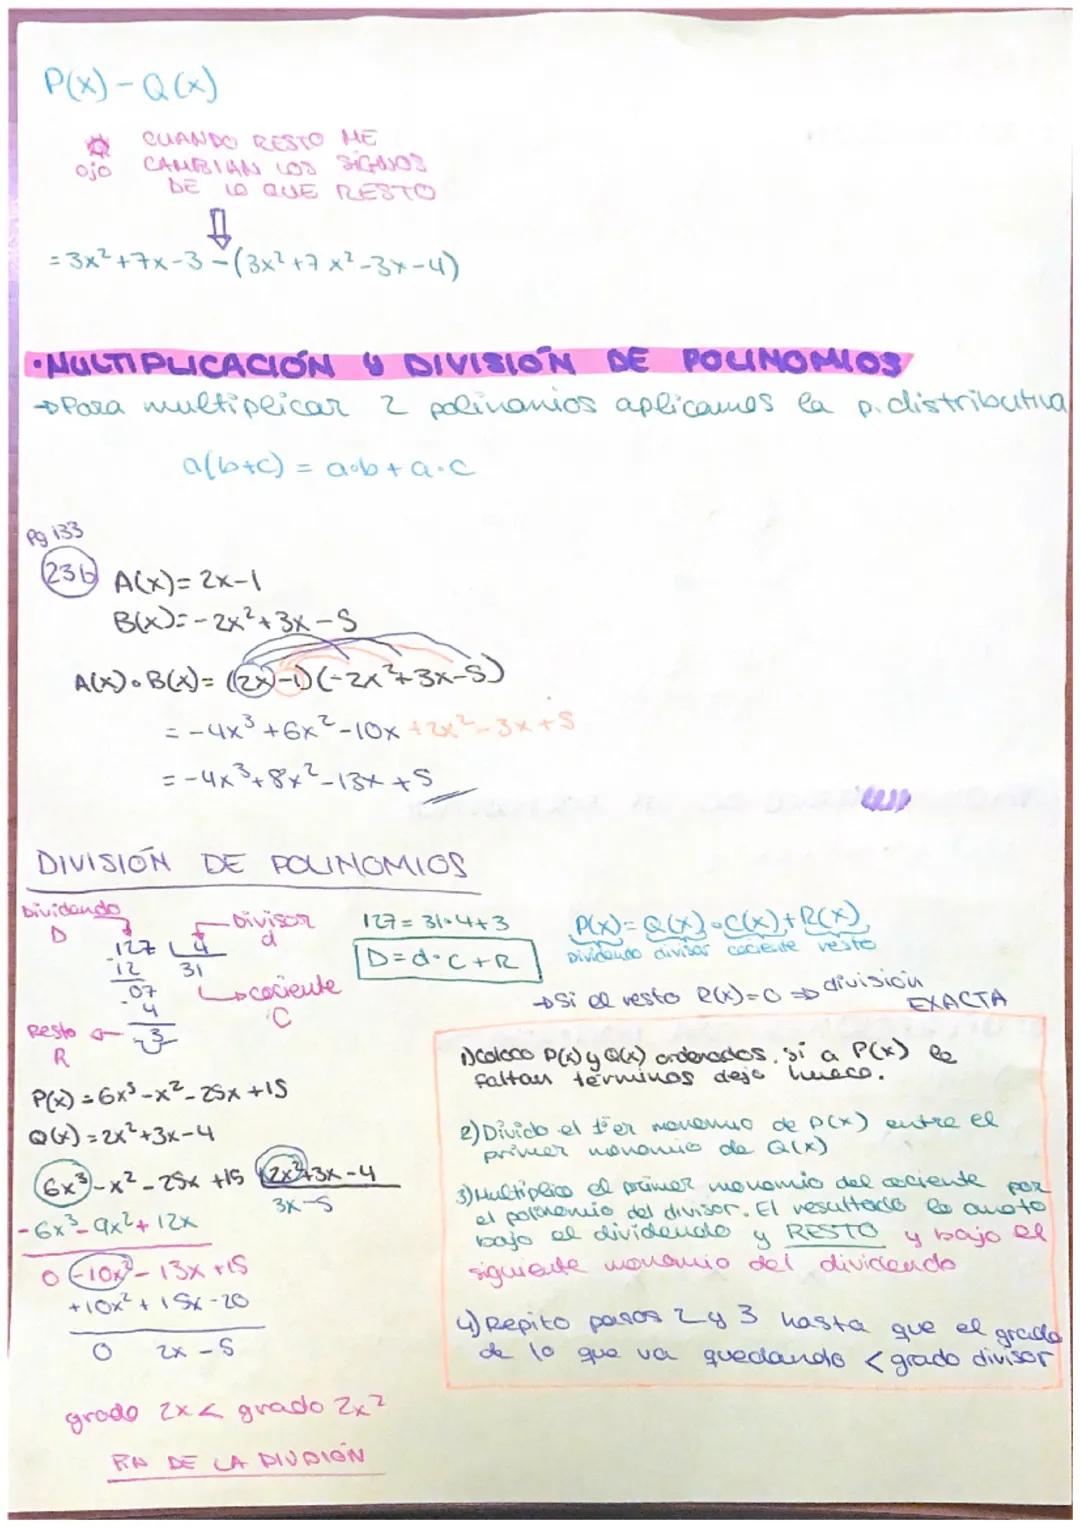 P(x) - Q(x)
CUANDO RESTO ME
ojo CAMBIAN LOS SIGNOS
DE LO QUE RESTO
= 3x²+7x-3-(3x²+7x²-3x-4)
·MULTIPLICACIÓN y DIVISIÓN DE POLINOMIOS
→Para multiplicar 2 polinomios aplicamos la p.distributiva
a(b+c) = a·b + a·c
Pg 133
23b A(x)= 2x-1
B(x)= -2x²+3x-5
A(x)·B(x)= (2x-1)(-2x²+3x-5)
= -4x³+6x²-10x+2x²-3x+5
= -4x³+8x²-13x+5
DIVISIÓN DE POLINOMIOS
Dividendo
D
Divisor
d
127 4
-12 31
07
-4
3
cociente
C
Resto
R
127= 31·4+3
D=d·C+R
P(x)=Q(x)·C(x)+R(x)
Dividendo divisor cociente resto
→Si el resto R(x)=0 ⇒ división
EXACTA
P(x)=6x³-x²-25x+15
Q(x)=2x²+3x-4
6x³-x²-25x+15 2x²+3x-4
-6x³-9x²+12x 3x-5
0 -10x²-13x+15
+10x²+15x-20
0 2x-5
grado 2x < grado 2x²
FIN DE LA DIVISIÓN
1)Coloco P(x) y Q(x) ordenados. Si a P(x) le
faltan términos dejo hueco.
2)Divido el 1er monomio de P(x) entre el
primer monomio de Q(x)
3)Multiplico el primer monomio del cociente por
el polinomio del divisor. El resultado lo anoto
bajo el dividendo y RESTO y bajo el
siguiente monomio del dividendo
4)Repito pasos 2 y 3 hasta que el grado
de lo que va quedando < grado divisor